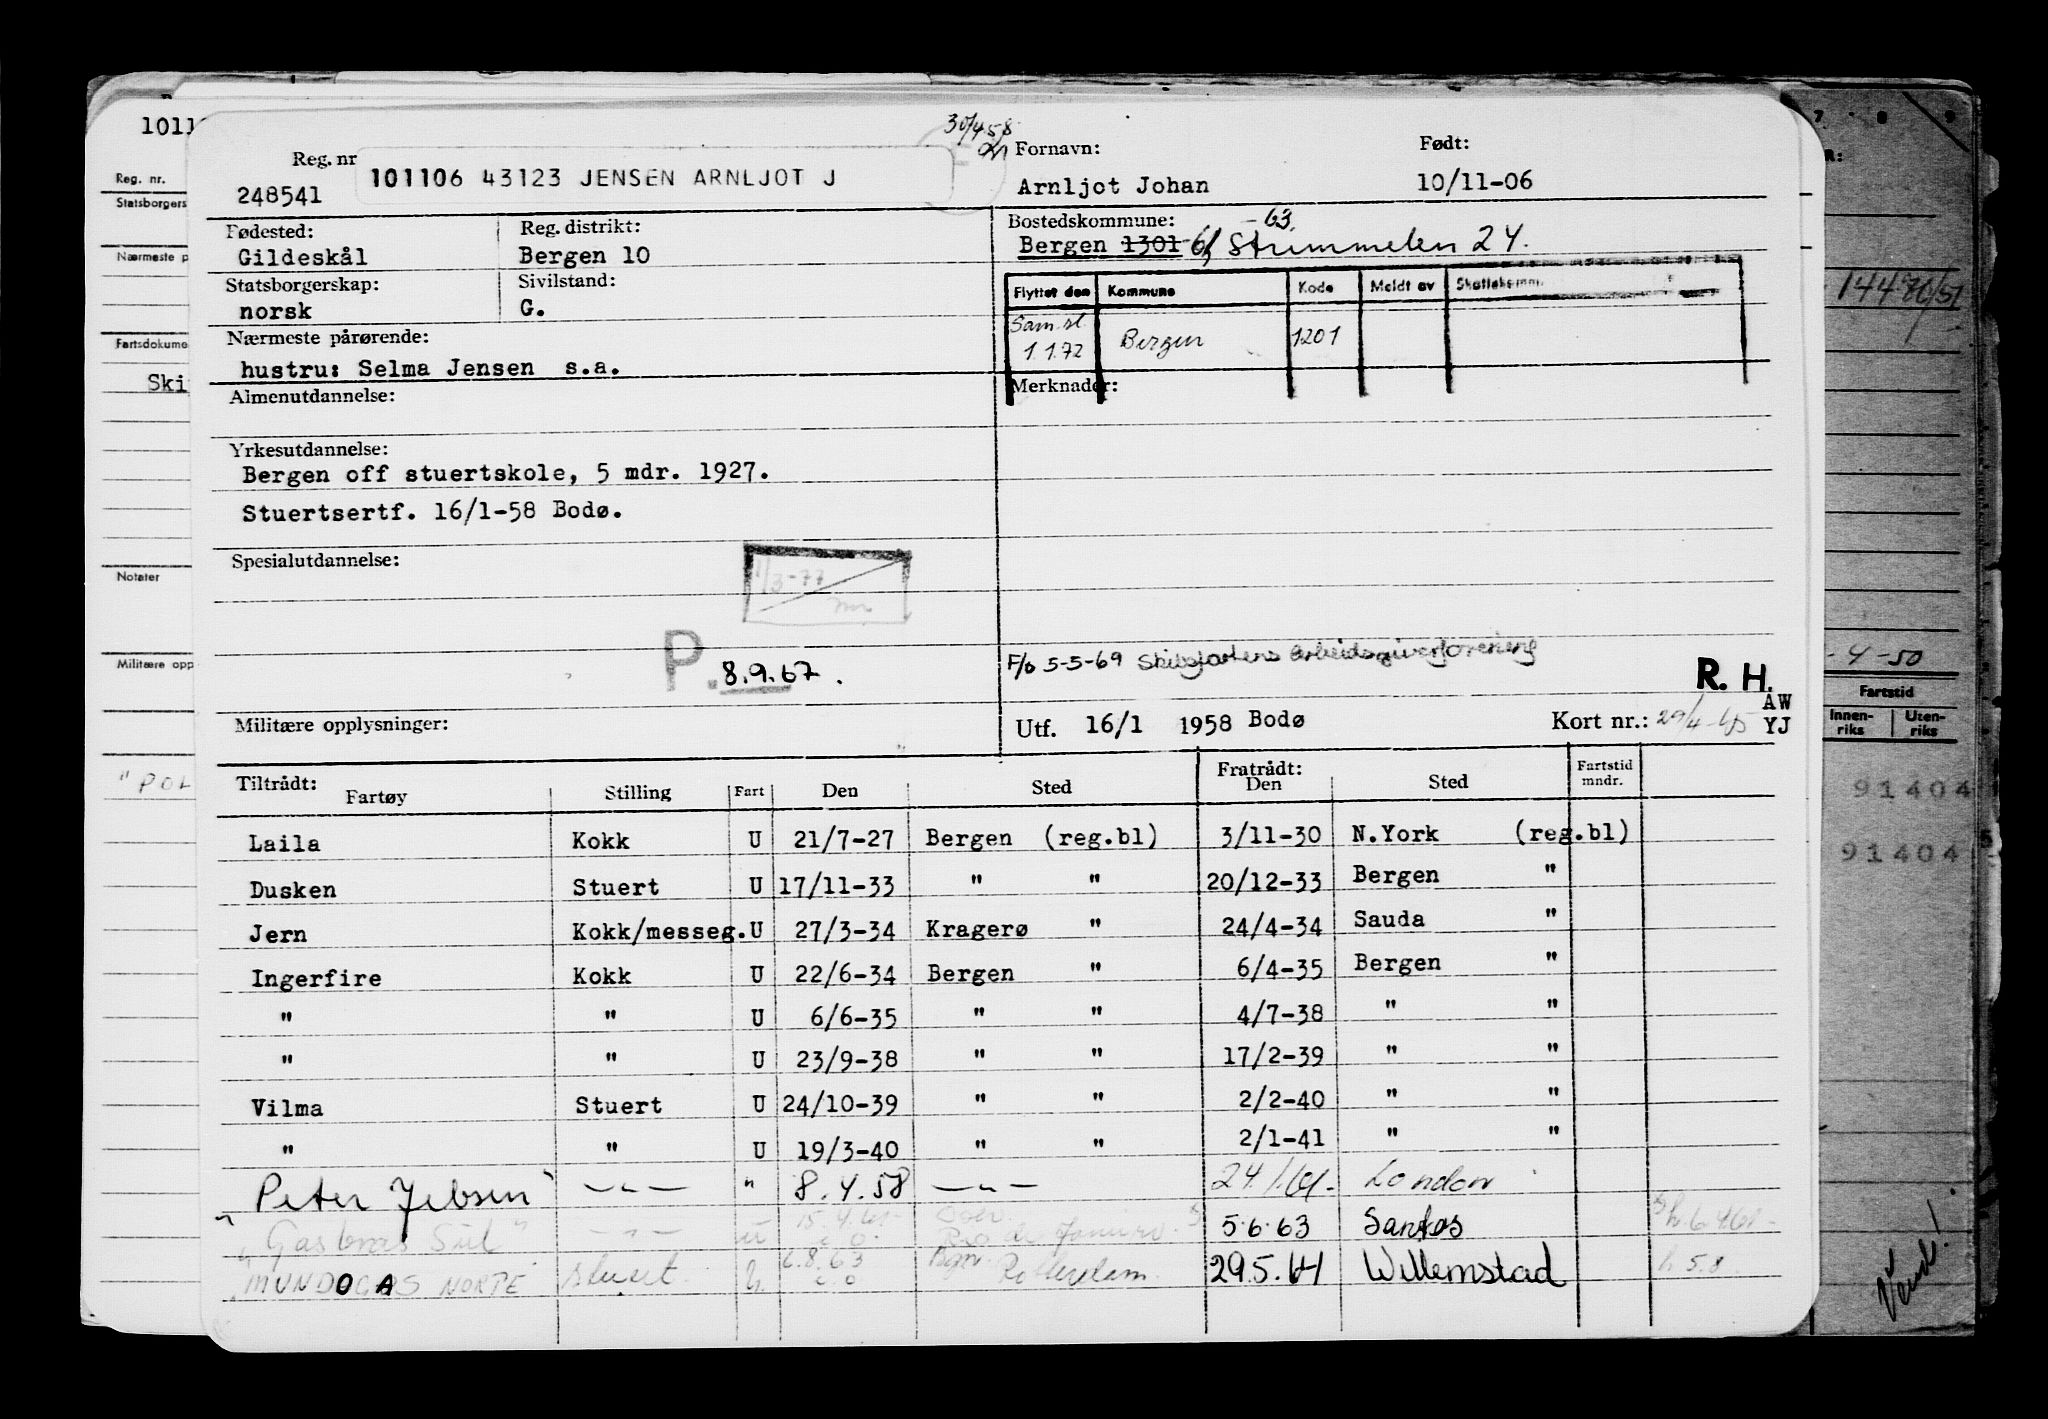 30/4 58
Reg. nr
101106 43123 JENSEN ARNLJOT J
248541
Fornavn:
Arnljot Johan
Født:
10/11-06
Fødested:
Gildeskål
Reg. distrikt:
Bergen 10
Bostedskommune:
-63.
Bergen 1301 Strimmelen 24.
Statsborgerskap:
norsk
Sivilstand:
G.
Flyttet den Kommune Kode Meldt av Skattekomm.
Sam.sl.
1 1.72 Bergen 1201
Nærmeste pårørende:
hustru: Selma Jensen s.a.
Merknader:
Almenutdannelse:
Yrkesutdannelse:
Bergen off stuertskole, 5 mdr. 1927.
Stuertsertf. 16/1-58 Bodø.
Spesialutdannelse:
1/3-77
P. 8.9.67.
F/o 5-5-69 Skibsfartens Arbeidsgiverforening
R. H.
AW
Militære opplysninger:
Utf. 16/1 1958 Bodø
Kort nr.: 29/4-65 YJ
Tiltrådt:
Fartøy Stilling Fart Den Sted
Fratrådt:
Den Sted
Fartstid
mndr.
Laila Kokk U 21/7-27 Bergen (reg.bl) 3/11-30 N.York (reg.bl)
Dusken Stuert U 17/11-33 " " 20/12-33 Bergen "
Jern Kokk/messeg. U 27/3-34 Kragerø " 24/4-34 Sauda "
Ingerfire Kokk U 22/6-34 Bergen " 6/4-35 Bergen "
" " U 6/6-35 " " 4/7-38 " "
" " U 23/9-38 " " 17/2-39 " "
Vilma Stuert U 24/10-39 " " 2/2-40 " "
" " U 19/3-40 " " 2/1-41 " "
Peter Jebsen —"— " 8.4.58 —"— 24.1.61- London
"Gasbras Sul" —"— u 15.4.61- Rio de Janeiro 5.6.63 Santos
"MUNDOGAS NORTE stuert u. 6.8.63 Rotterdam 29.5.64 Willemstad
1011
Reg. nr.
Statsborgers
Nærmeste p
Fartsdokume
Ski
Notater
Militære opp
"POL
7 8 9
R:
14476/51
-4-50
Fartstid
Innen-
riks
Uten-
riks
91404
91404
Vend!